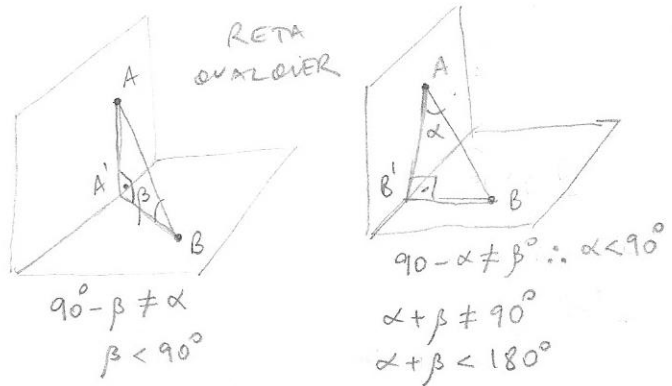 RETA
QUALQUER
A
A'
β
B
90° - β ≠ α
β < 90°
A
α
B'
B
90 - α ≠ β° ∴ α < 90°
α + β ≠ 90°
α + β < 180°